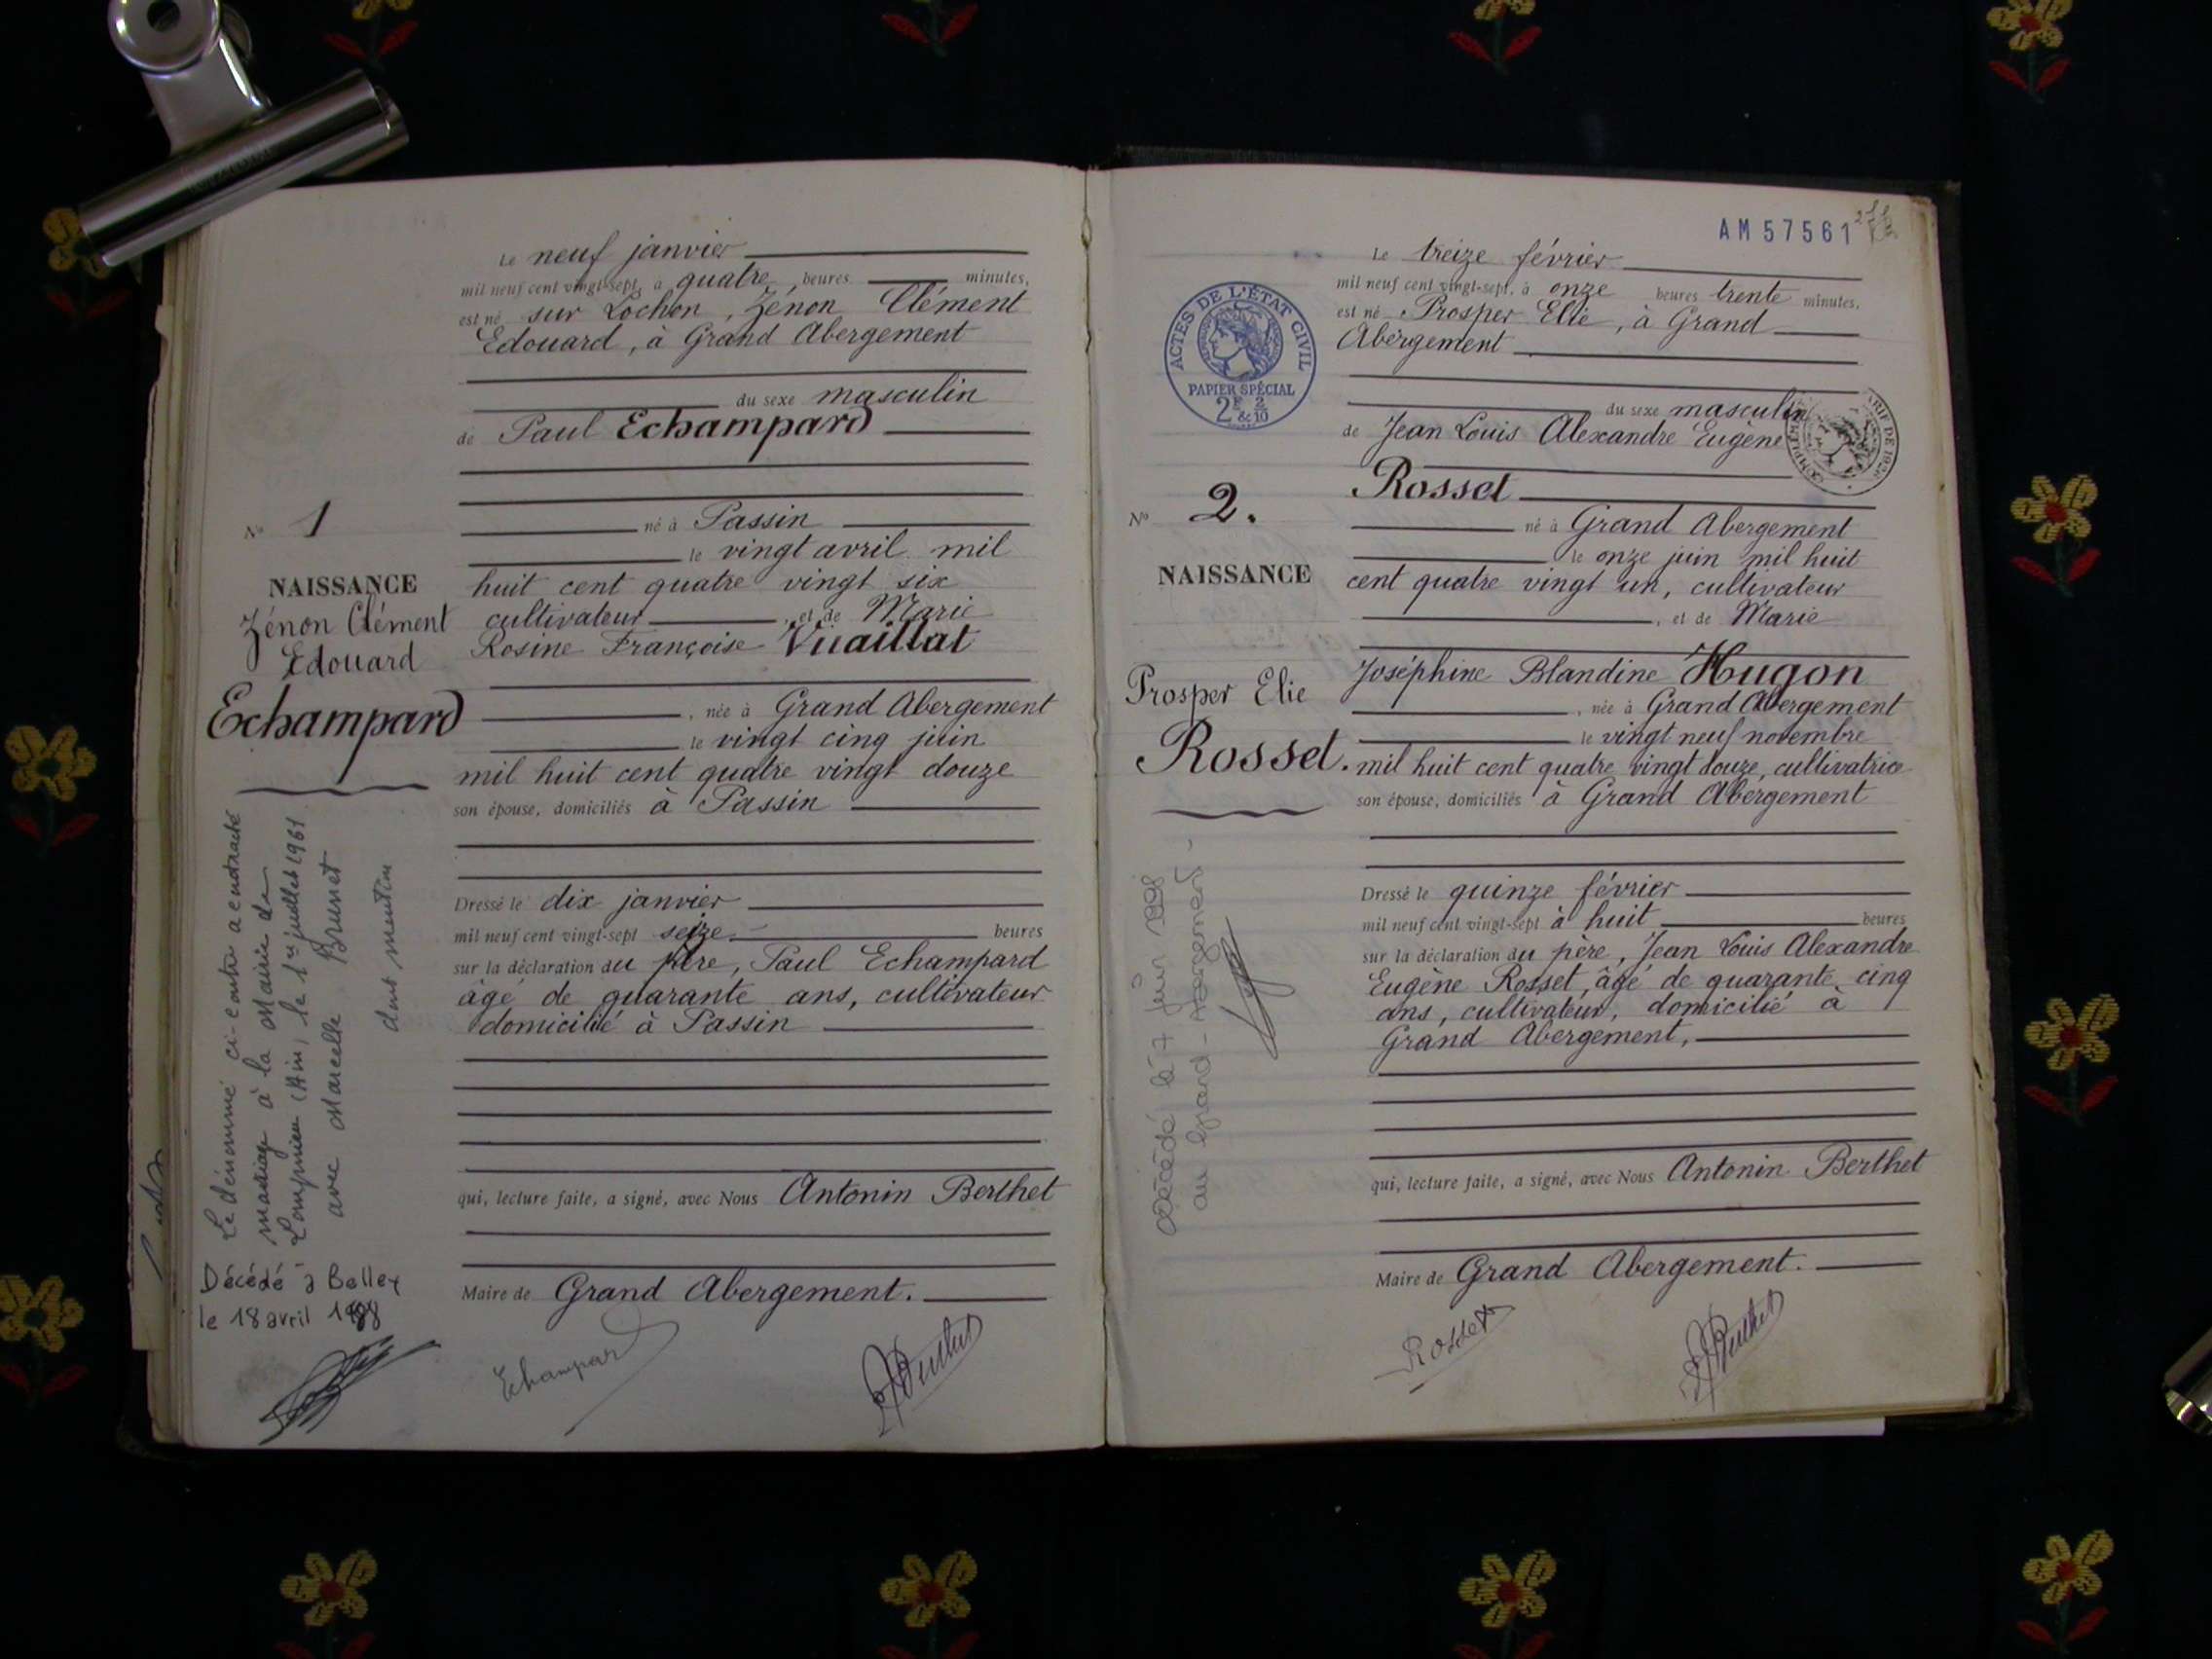 Le neuf janvier
mil neuf cent vingt-sept, à quatre heures minutes,
est né sur Lochon, Zénon Clément
Edouard, à Grand Abergement
du sexe masculin
de Paul Echampard
né à Passin
le vingt avril mil
huit cent quatre vingt six
cultivateur, et de Marie
Rosine Françoise Vuaillat
, née à Grand Abergement
le vingt cinq juin
mil huit cent quatre vingt douze
son épouse, domiciliés à Passin
Dressé le dix janvier
mil neuf cent vingt-sept seize heures
sur la déclaration du père, Paul Echampard
âgé de quarante ans, cultivateur
domicilié à Passin
qui, lecture faite, a signé, avec Nous Antonin Berthet
Maire de Grand Abergement.
Echampard
Berthet
N° 1
NAISSANCE
Zénon Clément
Edouard
Echampard
Le dénommé ci-contre a contracté
mariage à la Mairie de
(Ain) le 1er juillet 1961
avec Marcelle Brunet
dont mention
Décédé à Belley
le 18 avril
AM 57561
Le treize février
mil neuf cent vingt-sept, à onze heures trente minutes,
est né Prosper Elie, à Grand
Abergement
du sexe masculin
de Jean Louis Alexandre Eugène
Rosset
né à Grand Abergement
le onze juin mil huit
cent quatre vingt un, cultivateur
, et de Marie
Joséphine Blandine Hugon
, née à Grand Abergement
le vingt neuf novembre
mil huit cent quatre vingt douze, cultivatrice
son épouse, domiciliés à Grand Abergement
Dressé le quinze février
mil neuf cent vingt-sept à huit heures
sur la déclaration du père, Jean Louis Alexandre
Eugène Rosset, âgé de quarante cinq
ans, cultivateur, domicilié à
Grand Abergement,
qui, lecture faite, a signé, avec Nous Antonin Berthet
Maire de Grand Abergement.
Rosset
Berthet
ACTES DE L'ÉTAT CIVIL
PAPIER SPÉCIAL
2F & 2/10
N° 2.
NAISSANCE
Prosper Elie
Rosset.
Décédé le 7 juin
au Grand-Abergement -